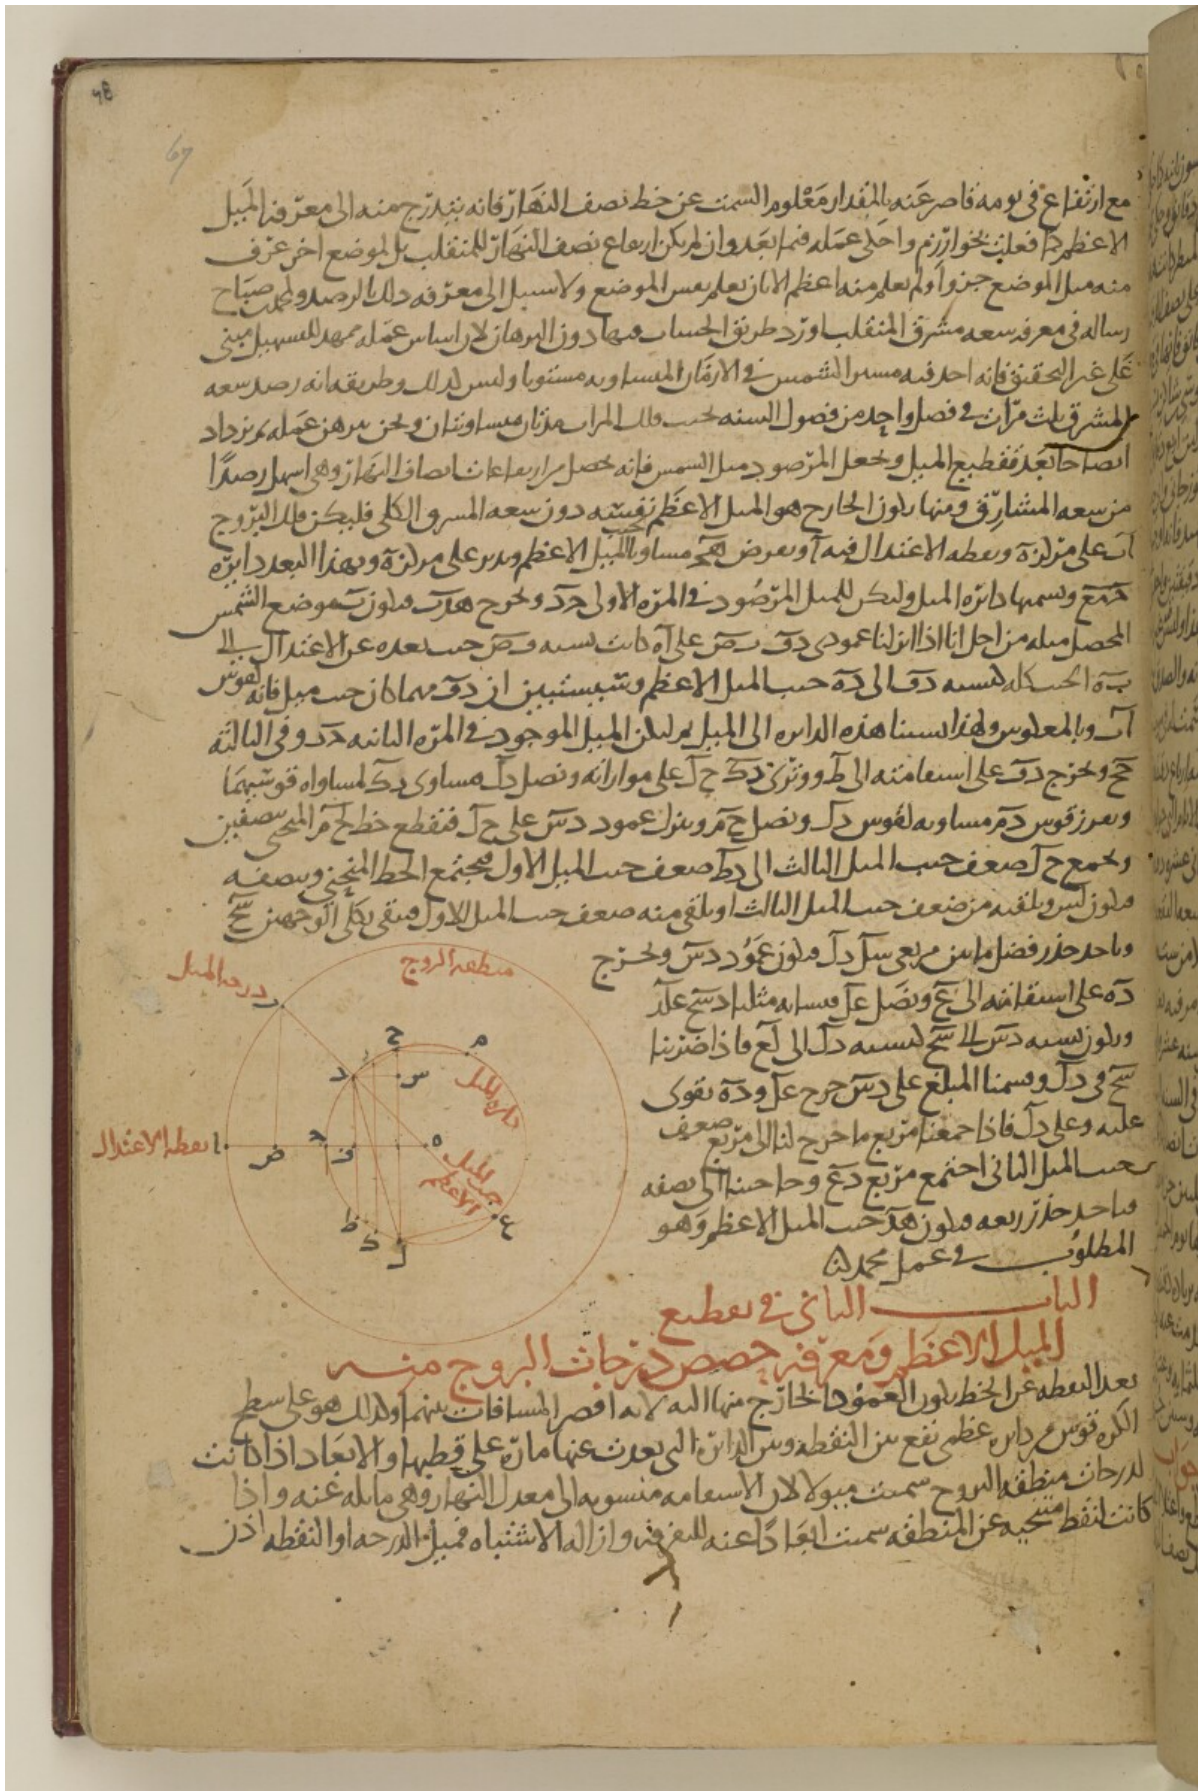 48
67
مع ارتفاع في يومه قاصر عنه بالمقدار معلوم السمت عن خط نصف النهار فانه يتدرج منه الى معرفة الميل
الاعظم كما فعلت بخوارزم واحكى عمله فيما بعد وان لم يكن ارتفاع نصف النهار للمنقلب بل لموضع اخر عرف
منه ميل الموضع جزوا ولم يعلم منه اعظم الا بان يعلم نفس الموضع ولا سبيل الى معرفه ذلك بالرصد ولمحمد بن صباح
رساله في معرفه سعه مشرق المنقلب اورد طريق الحساب فيها دون البرهان لان اساس عمله ممهد للتسهيل مبنى
على غير التحقيق فانه اخذ فيه مسير الشمس في الازمان المتساويه مستويا وليس كذلك وطريقه انه رصد سعه
المشرق ثلث مرات في فصل واحد من فصول السنه بحيث تخلل المرات مدتان متساويتان ونحن نبرهن عمله
ايضا حتى بعد تقطيع الميل ونجعل المرصود ميل الشمس فانه يحصل من ارتفاعات انصاف النهار وهي اسهل رصدا
من سعه المشارق ومنها يكون الخارج هو الميل الاعظم نفسه دون سعه المشرق الكلى فليكن فلك البروج
اب على مركز ه ونقطه الاعتدال فيه ا ونفرض ه ح مساويا لجيب الميل الاعظم وندير على مركز ه وبهذا البعد دايرة
ح م ع ونسميها دايره الميل وليكن الميل المرصود في المره الاولى ح د ونخرج ه د ب فيكون ب موضع الشمس
المحصل ميله من اجل انا اذا انزلنا عمودى د ف ب ص على ا ه كانت نسبه ب ص جيب بعده عن الاعتدال الى
ب ه الجيب كله كنسبه د ف الى د ه جيب الميل الاعظم ويستبين ان د ف مهما كان جيب ميل فانه لقوس
اب وبالمعكوس ولهذا نسبنا هذه الدايره الى الميل ثم ليكن الميل الموجود في المره الثانيه ح د وفي الثالثه
ح ح ونخرج د ف على استقامته الى ط ووترى د ك ح ل على موازاته ونصل د ل مساوى د ك لمساواه قوسيهما
ونفرز قوس د م مساويه لقوس د ل ونصل ح م وننزل عمود د س على ح ل فنقطع خط ل ح م المنحنى بنصفين
ونجمع ح ل ضعف جيب الميل الثالث الى د ط ضعف جيب الميل الاول فيجتمع الخط المنحنى وننصفه
فيكون ل س ونلقيه من ضعف جيب الميل الثالث او نلقى منه ضعف جيب الميل الاول فيبقى بكلى الوجهين س ح
وناخذ جذر فضل ما بين مربعى س ل د ل فيكون عمود د س ونخرج
د ه على استقامته الى ع ونصل ع ل فيشابه مثلثا د س ح ع ل د
ويكون نسبه د س الى س ح كنسبه د ل الى ل ع فاذا ضربنا
س ح في د ل وقسمنا المبلغ على د س خرج ع ل ود ه يقوى
عليه وعلى د ل فاذا جمعنا مربع ما خرج لنا الى مربع ضعف
جيب الميل الثانى اجتمع مربع د ع وحاجتنا الى نصفه
فناخذ جذر ربعه فيكون ه د جيب الميل الاعظم وهو
المطلوب في عمل محمد
منطقه البروج
درجه الميل
دايره الميل
جيب الميل الاعظم
نقطه الاعتدال
الباب الثانى في تقطيع
الميل الاعظم ومعرفة حصص درجات البروج منه
بعد النقطه عن الخط يكون العمود الخارج منها اليه لانه اقصر المسافات بينهما وكذلك هو على سطح
الكره قوس من دايره عظمى تقع بين النقطه وبين الدايرة التى بعدت عنها مارة على قطبها والابعاد اذا كانت
لدرجات منطقه البروج سميت ميولا لان الاستقامه منسوبه الى معدل النهار وهي مايله عنه واذا
كانت لنقط متنحيه عن المنطقه سميت ابعادا عنه للتفرقه وازاله الاشتباه فميل الدرجه او النقطه اذن